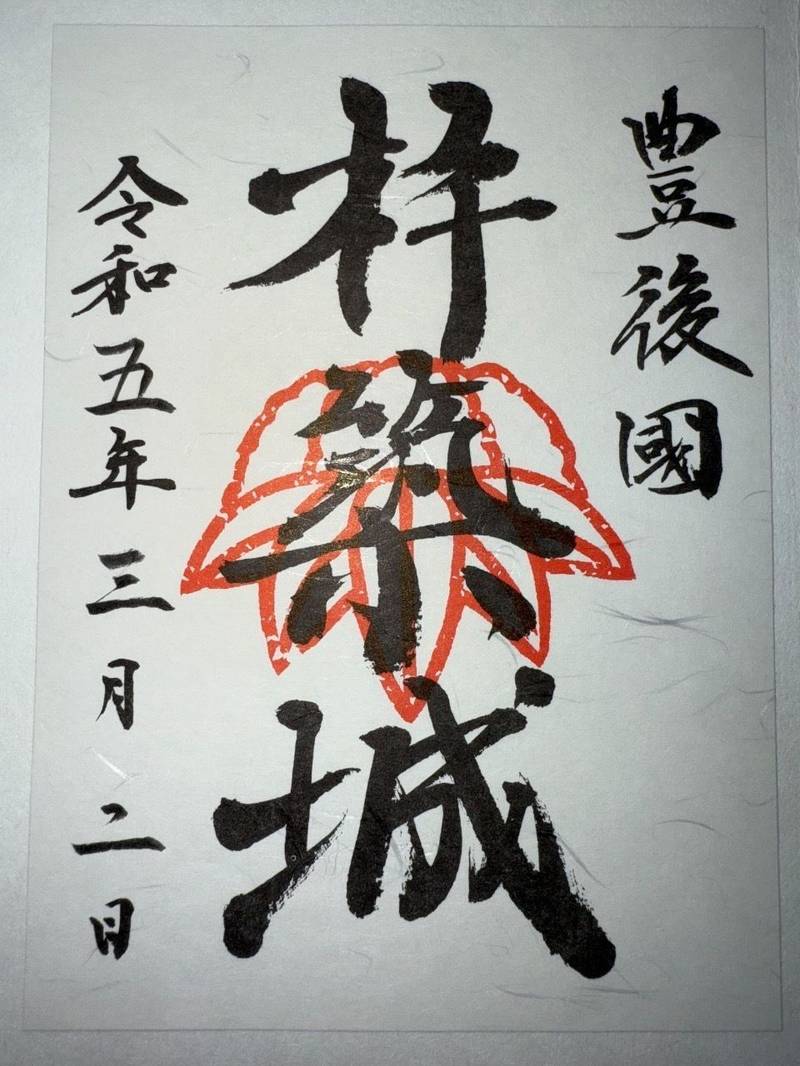 豊後國
杵築城
令和五年三月二日